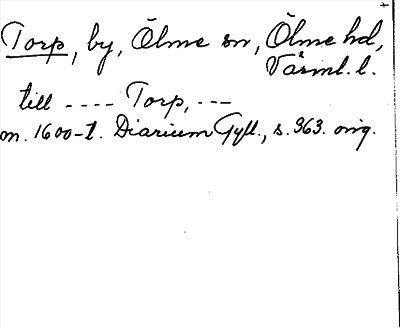 Torp, by, Ölme sn, Ölme hd,
Värml. l.
till ---- Torp, ---
m. 1600-t. Diarium Gyll., s. 363. orig.